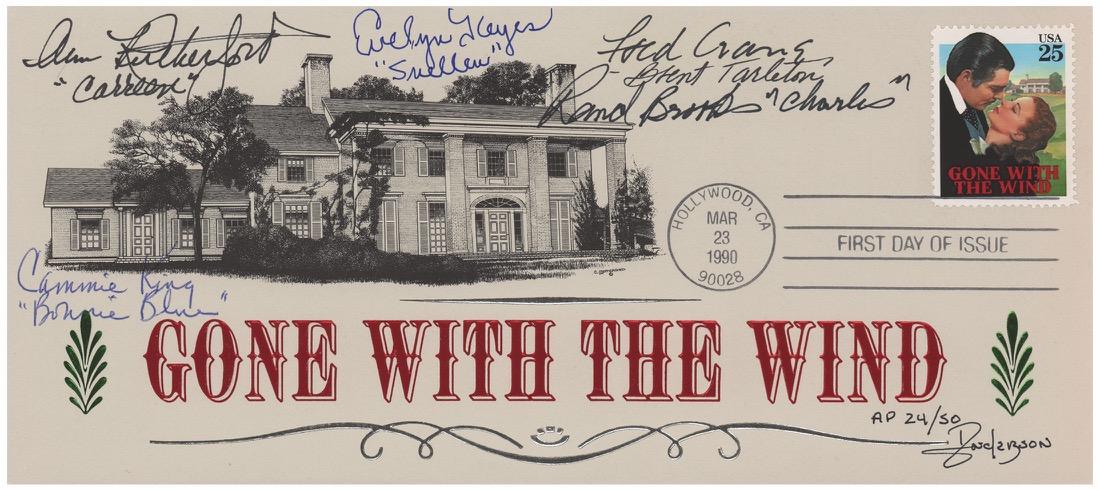 Ann Rutherford
"Carreen"
Evelyn Keyes
"Suellen"
Fred Crane
- Brent Tarleton
Rand Brooks "Charles"
USA
25
GONE WITH
THE WIND
HOLLYWOOD, CA
MAR
23
1990
90028
FIRST DAY OF ISSUE
Cammie King
"Bonnie Blue"
GONE WITH THE WIND
AP 24/50
Anderson